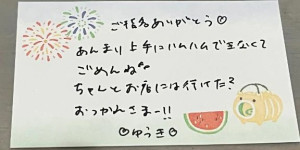 ご指名ありがとう♡
あんまり上手にハムハムできなくて
ごめんね
ちゃんとお店には行けた?
おつかれさまー!!
♡ゆうき♡